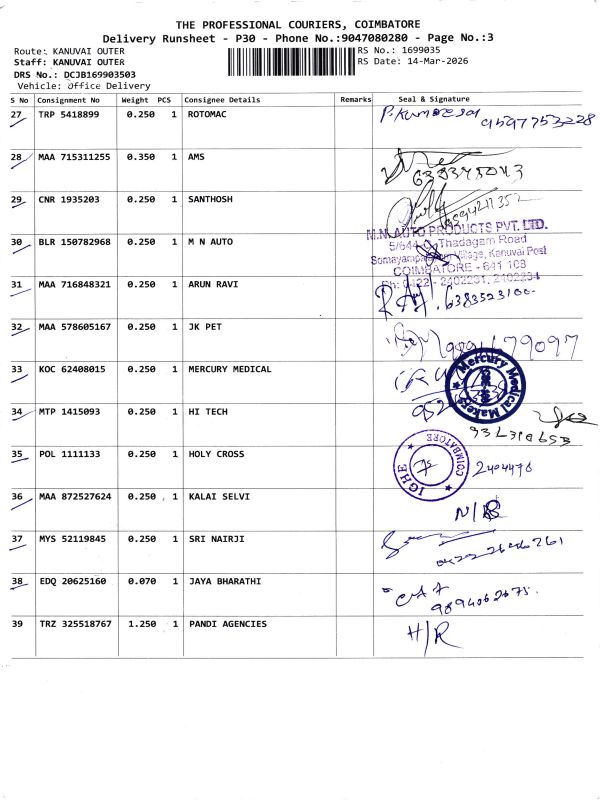 THE PROFESSIONAL COURIERS, COIMBATORE
Delivery Runsheet - P30 - Phone No.:9047080280 - Page No.:3
Route: KANUVAI OUTER RS No.: 1699035
Staff: KANUVAI OUTER RS Date: 14-Mar-2026
DRS No.: DCJB169903503
Vehicle: Office Delivery
S No Consignment No Weight PCS Consignee Details Remarks Seal & Signature
27 TRP 5418899 0.250 1 ROTOMAC P.Kumaresa 9597753228
28 MAA 715311255 0.350 1 AMS
29 CNR 1935203 0.250 1 SANTHOSH
30 BLR 150782968 0.250 1 M N AUTO
M.N. AUTO PRODUCTS PVT. LTD.
5/644 Thadagam Road
Village, Kanuvai Post
COIMBATORE - 641 108
Ph: 0422 - 2402231, 2402234
31 MAA 716848321 0.250 1 ARUN RAVI 6383523100
32 MAA 578605167 0.250 1 JK PET
33 KOC 62408015 0.250 1 MERCURY MEDICAL
Mercury Medical Makers
34 MTP 1415093 0.250 1 HI TECH
35 POL 1111133 0.250 1 HOLY CROSS 2404476
IGHE COIMBATORE
36 MAA 872527624 0.250 1 KALAI SELVI
37 MYS 52119845 0.250 1 SRI NAIRJI
38 EDQ 20625160 0.070 1 JAYA BHARATHI
39 TRZ 325518767 1.250 1 PANDI AGENCIES H/R